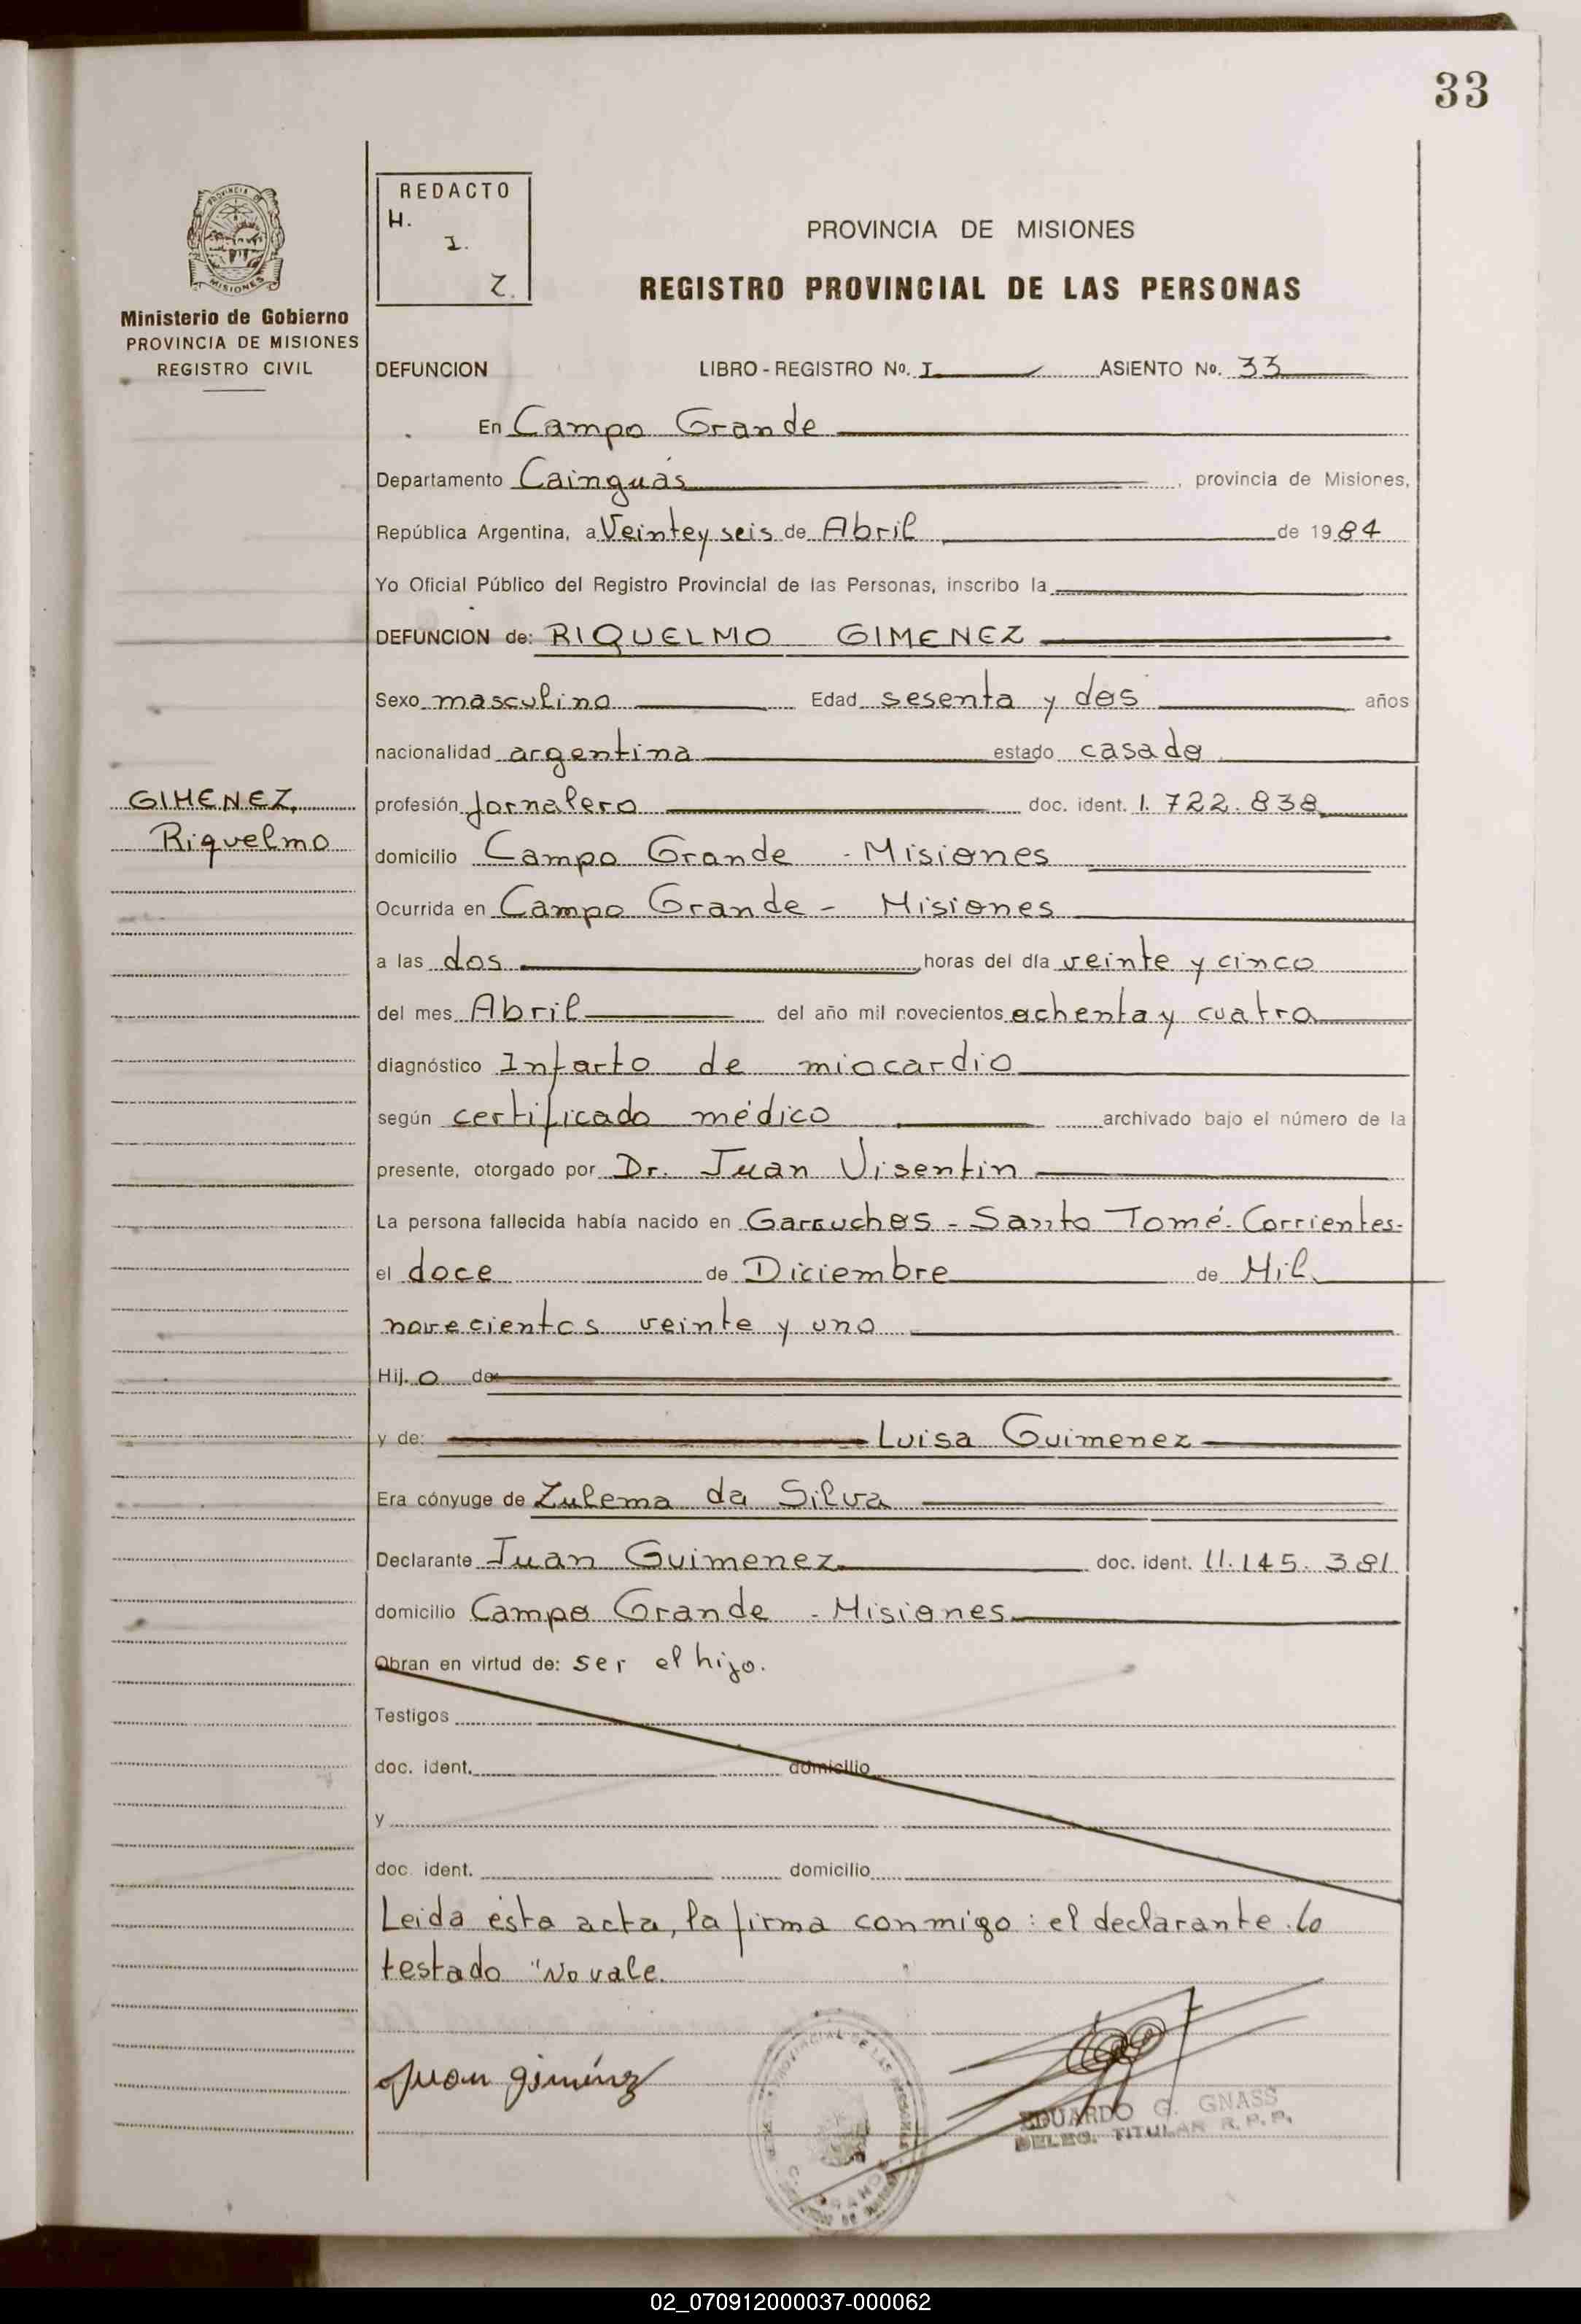 33
REDACTO
H.
I.
Z.
PROVINCIA DE MISIONES
REGISTRO PROVINCIAL DE LAS PERSONAS
PROVINCIA DE
MISIONES
Ministerio de Gobierno
PROVINCIA DE MISIONES
REGISTRO CIVIL
DEFUNCION LIBRO - REGISTRO No. I ASIENTO No. 33
En Campo Grande
Departamento Cainguás, provincia de Misiones,
República Argentina, a Veinte y seis de Abril de 1984
Yo Oficial Público del Registro Provincial de las Personas, inscribo la
DEFUNCION de: RIQUELMO GIMENEZ
Sexo masculino Edad sesenta y dos años
nacionalidad argentina estado casado
GIMENEZ,
Riquelmo
profesión Jornalero doc. ident. 1.722.838
domicilio Campo Grande - Misiones
Ocurrida en Campo Grande - Misiones
a las dos horas del día veinte y cinco
del mes Abril del año mil novecientos ochenta y cuatro
diagnóstico Infarto de miocardio
según certificado médico archivado bajo el número de la
presente, otorgado por Dr. Juan Visentin
La persona fallecida había nacido en Garruchos - Santo Tomé - Corrientes-
el doce de Diciembre de Mil
novecientos veinte y uno
Hij o de:
y de: Luisa Guimenez
Era cónyuge de Zulema da Silva
Declarante Juan Guimenez doc. ident. 11.145.381
domicilio Campo Grande - Misiones
Obran en virtud de: ser el hijo.
Testigos
doc. ident. domicilio
y
doc. ident. domicilio
Leida ésta acta, la firma conmigo: el declarante. lo
testado "No vale.
Juan Giménez
EDUARDO G. GNASS
DELEG. TITULAR R.P.P.
02_070912000037-000062